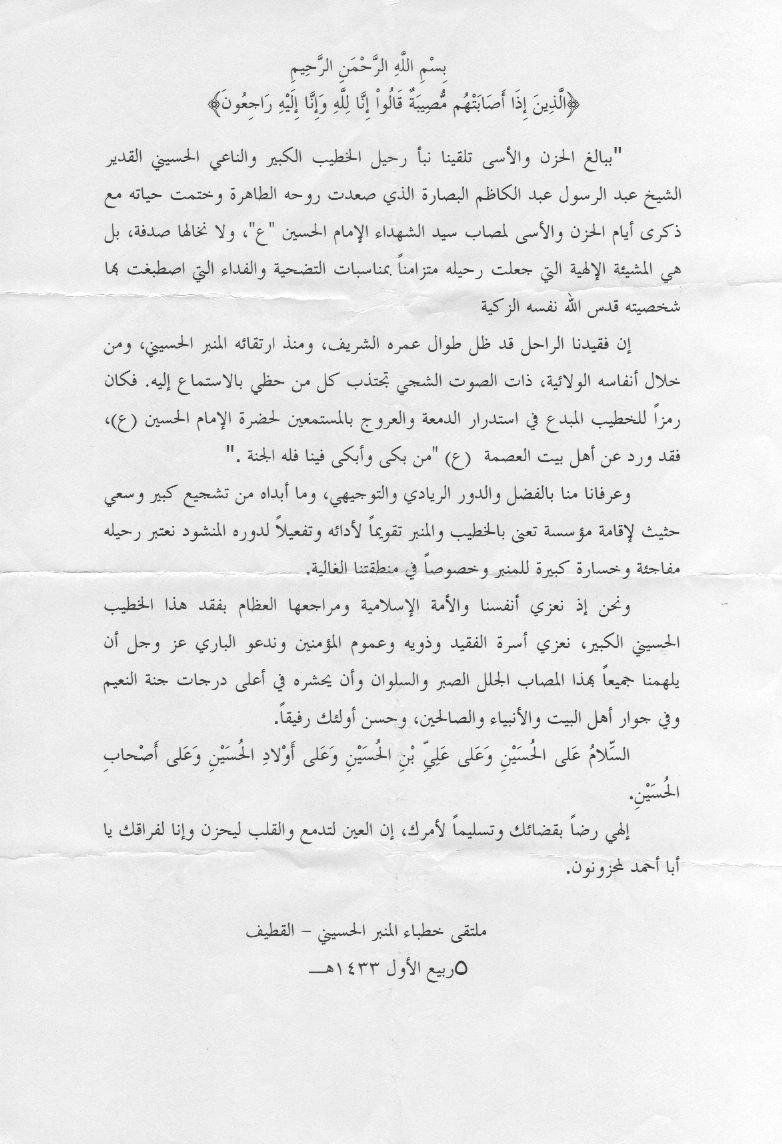 بِسْمِ اللَّهِ الرَّحْمَنِ الرَّحِيمِ
﴿الَّذِينَ إِذَا أَصَابَتْهُم مُّصِيبَةٌ قَالُواْ إِنَّا لِلَّهِ وَإِنَّا إِلَيْهِ رَاجِعُونَ﴾
"ببالغ الحزن والأسى تلقينا نبأ رحيل الخطيب الكبير والناعي الحسيني القدير
الشيخ عبد الرسول عبد الكاظم البصارة الذي صعدت روحه الطاهرة وختمت حياته مع
ذكرى أيام الحزن والأسى لمصاب سيد الشهداء الإمام الحسين "ع"، ولا نخالها صدفة، بل
هي المشيئة الإلهية التي جعلت رحيله متزامناً بمناسبات التضحية والفداء التي اصطبغت بها
شخصيته قدس الله نفسه الزكية
إن فقيدنا الراحل قد ظل طوال عمره الشريف، ومنذ ارتقائه المنبر الحسيني، ومن
خلال أنفاسه الولائية، ذات الصوت الشجي تجتذب كل من حظي بالاستماع إليه. فكان
رمزاً للخطيب المبدع في استدرار الدمعة والعروج بالمستمعين لحضرة الإمام الحسين (ع)،
فقد ورد عن أهل بيت العصمة (ع) "من بكى وأبكى فينا فله الجنة ."
وعرفانا منا بالفضل والدور الريادي والتوجيهي، وما أبداه من تشجيع كبير وسعي
حثيث لإقامة مؤسسة تعنى بالخطيب والمنبر تقويماً لأدائه وتفعيلاً لدوره المنشود نعتبر رحيله
مفاجئة وخسارة كبيرة للمنبر وخصوصاً في منطقتنا الغالية.
ونحن إذ نعزي أنفسنا والأمة الإسلامية ومراجعها العظام بفقد هذا الخطيب
الحسيني الكبير، نعزي أسرة الفقيد وذويه وعموم المؤمنين وندعو الباري عز وجل أن
يلهمنا جميعاً بهذا المصاب الجلل الصبر والسلوان وأن يحشره في أعلى درجات جنة النعيم
وفي جوار أهل البيت والأنبياء والصالحين، وحسن أولئك رفيقاً.
السَّلامُ عَلى الحُسَيْنِ وَعَلى عَلِيِّ بْنِ الحُسَيْنِ وَعَلى أَوْلادِ الحُسَيْنِ وَعَلى أَصْحابِ
الحُسَيْنِ.
إلهي رضاً بقضائك وتسليماً لأمرك، إن العين لتدمع والقلب ليحزن وإنا لفراقك يا
أبا أحمد لمحزونون.
ملتقى خطباء المنبر الحسيني – القطيف
٥ربيع الأول ١٤٣٣هـ